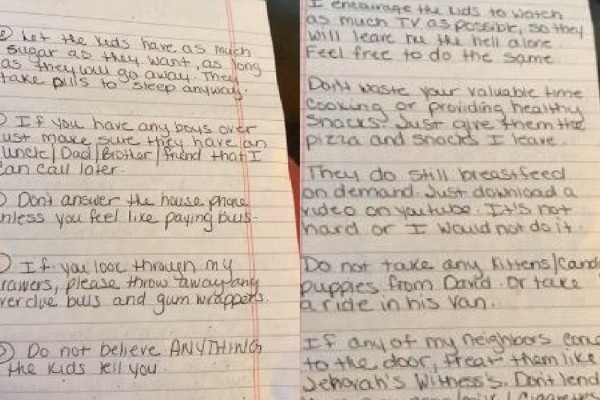 Let the kids have as much
sugar as they want, as long
as they will go away. They
take pills to sleep anyway.
If you have any boys over
just make sure they have an
uncle/Dad/Brother/friend that I
can call later.
Don't answer the house phone
unless you feel like paying bills.
If you look through my
drawers, please throw away any
overdue bills and gum wrappers.
Do not believe ANYTHING
the kids tell you
I encourage the kids to watch
as much TV as possible, so they
will leave me the hell alone.
Feel free to do the same.
Don't waste your valuable time
cooking or providing healthy
snacks. Just give them the
pizza and snacks I leave.
They do still breastfeed
on demand. Just download a
video on youtube. It's not
hard or I would not do it.
Do not take any kittens/Candy
puppies from David. Or take
a ride in his van.
If any of my neighbors come
to the door, treat them like
Jehovah's Witness's. Dont lend